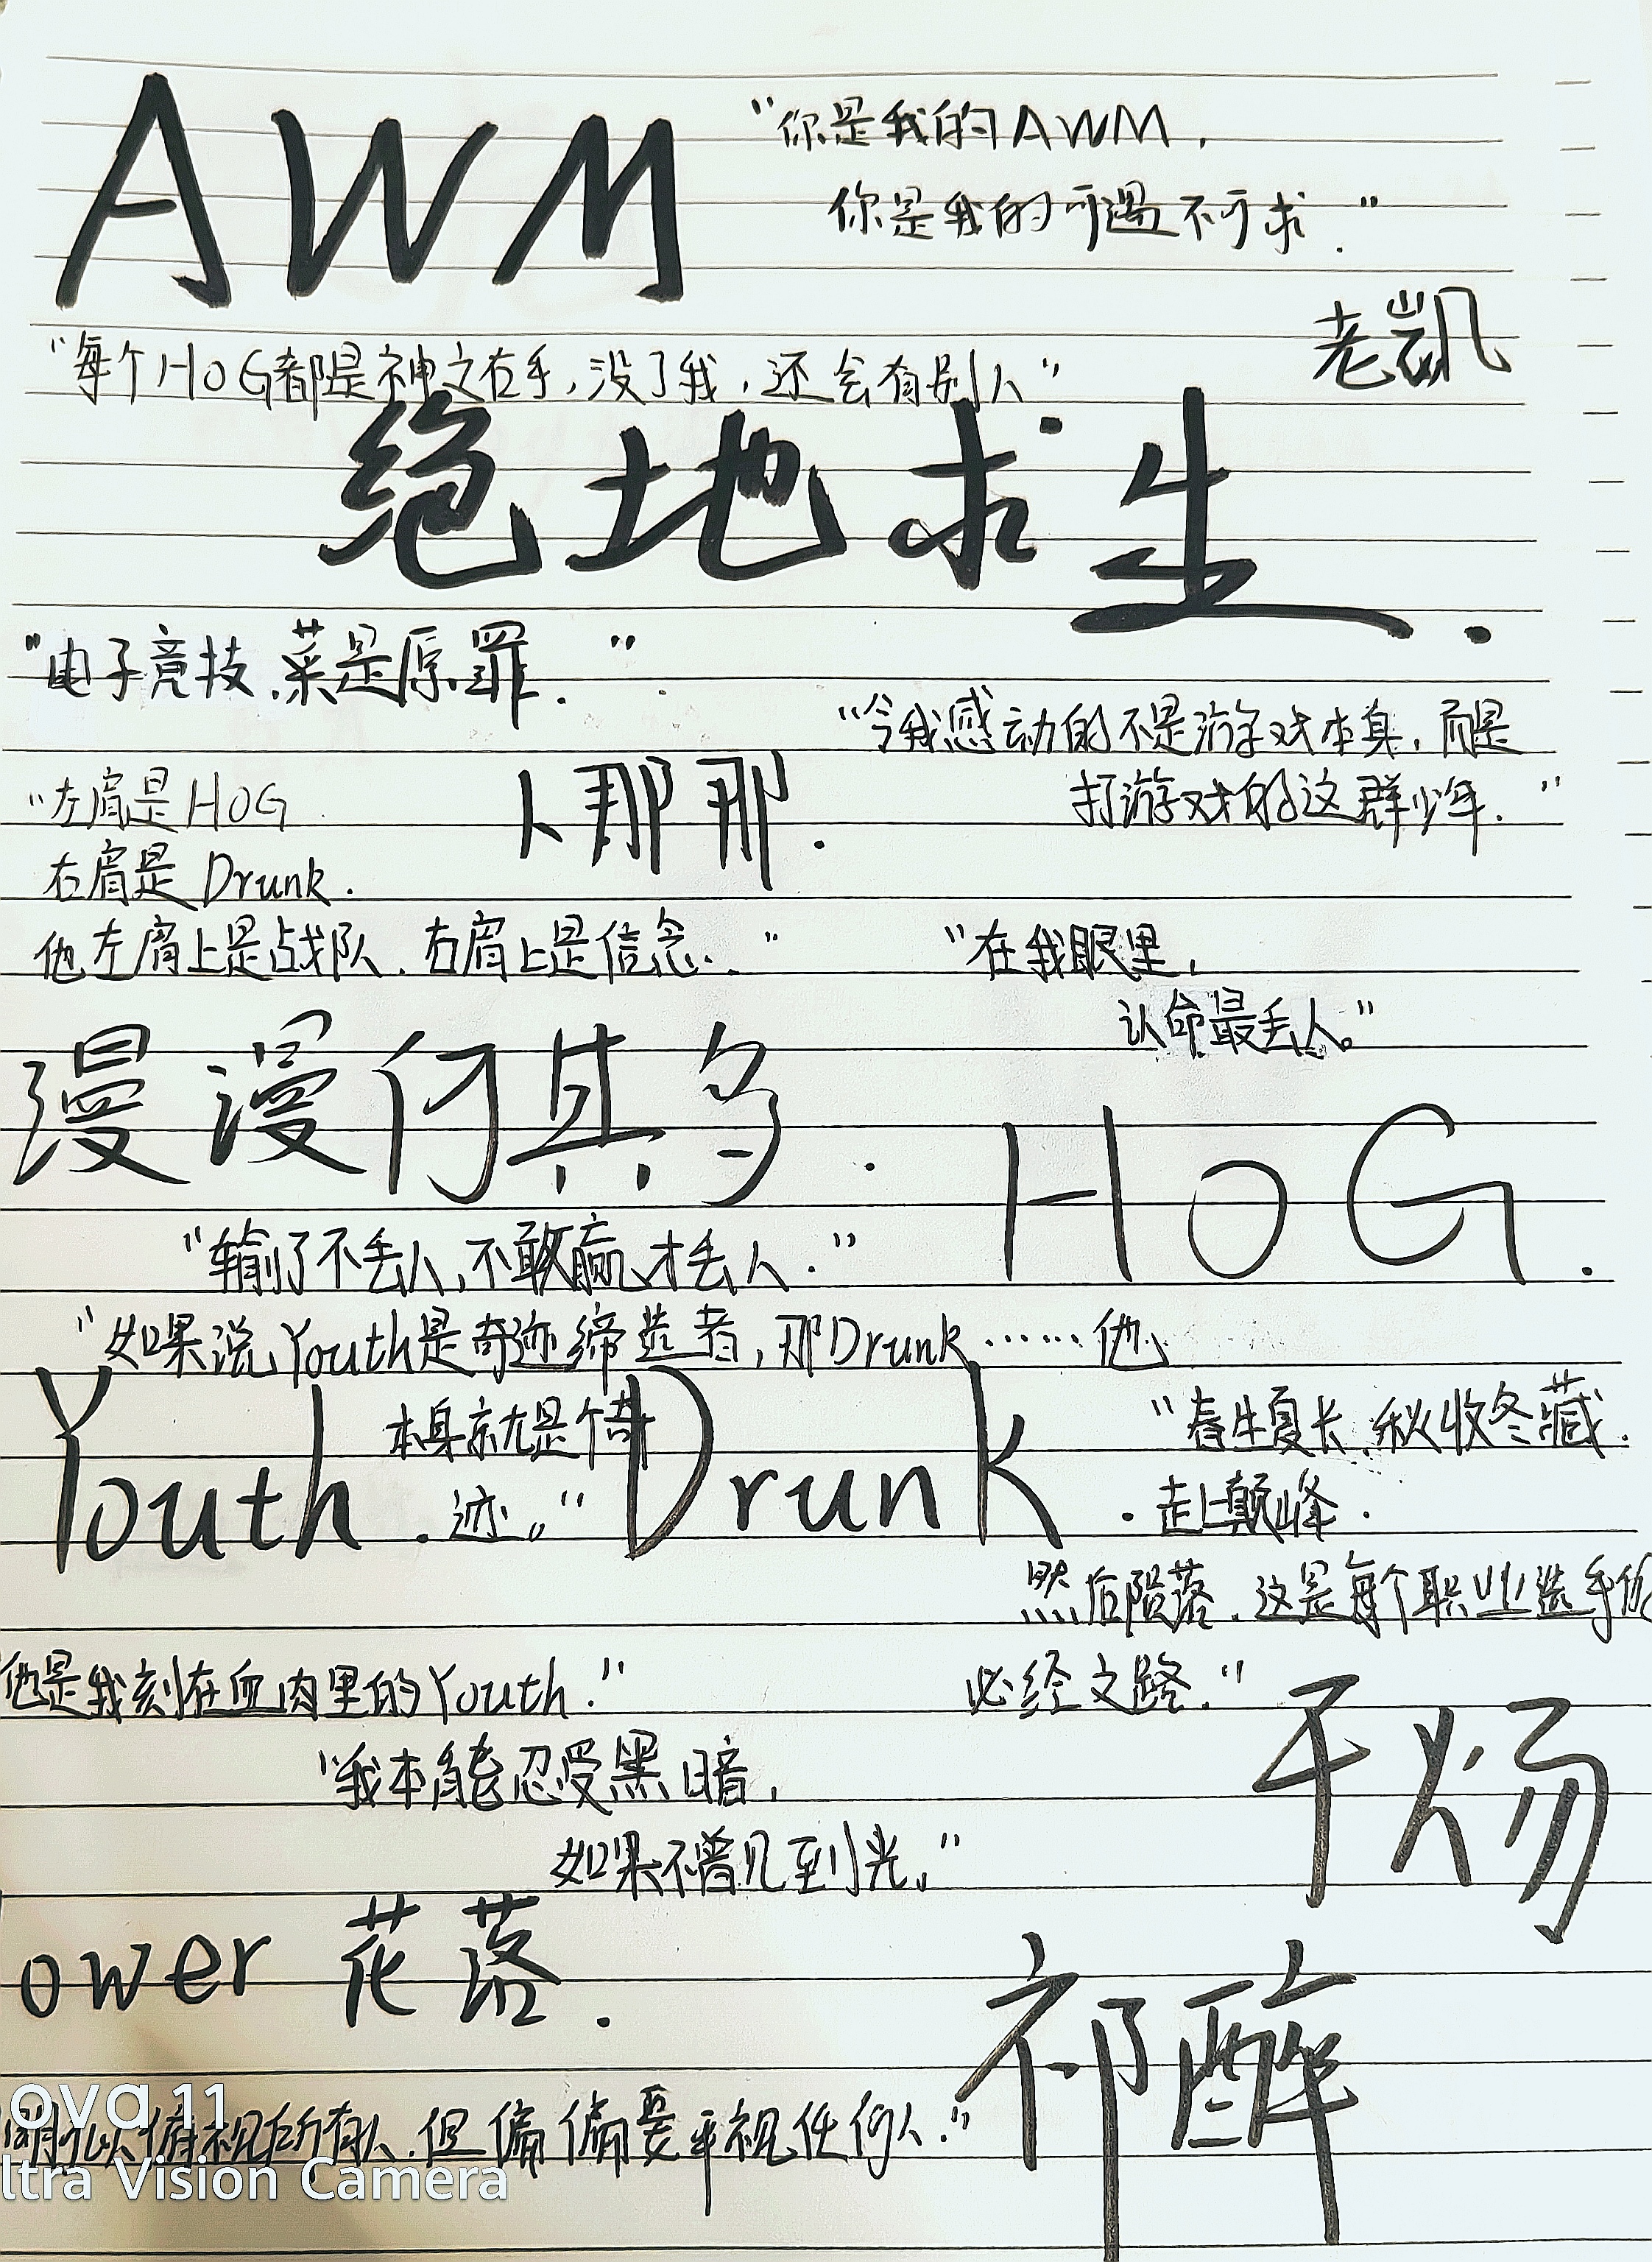 AWM
“你是我的AWM，
你是我的可遇不可求.”
老凯
“每个HOG都是神之右手，没了我，还会有别人.”
绝地求生.
“电子竞技，菜是原罪.”
“令我感动的不是游戏本身，而是
打游戏的这群少年.”
卜那那.
“左肩是HOG
右肩是Drunk.
他左肩上是战队，右肩上是信念.”
“在我眼里，
认命最丢人。”
漫漫何其多.
HOG.
“输了不丢人，不敢赢才丢人.”
“如果说Youth是奇迹缔造者，那Drunk……他
本身就是个奇
迹。”
Youth.
Drunk.
“春生夏长，秋收冬藏.
走上巅峰.
然后陨落，这是每个职业选手的
必经之路.”
他是我刻在血肉里的Youth.”
于炀
“我本能忍受黑暗，
如果不曾见到光.”
ower 花落.
祁醉
明可以俯视所有人，但偏偏要平视任何人.”
ova 11
ltra Vision Camera